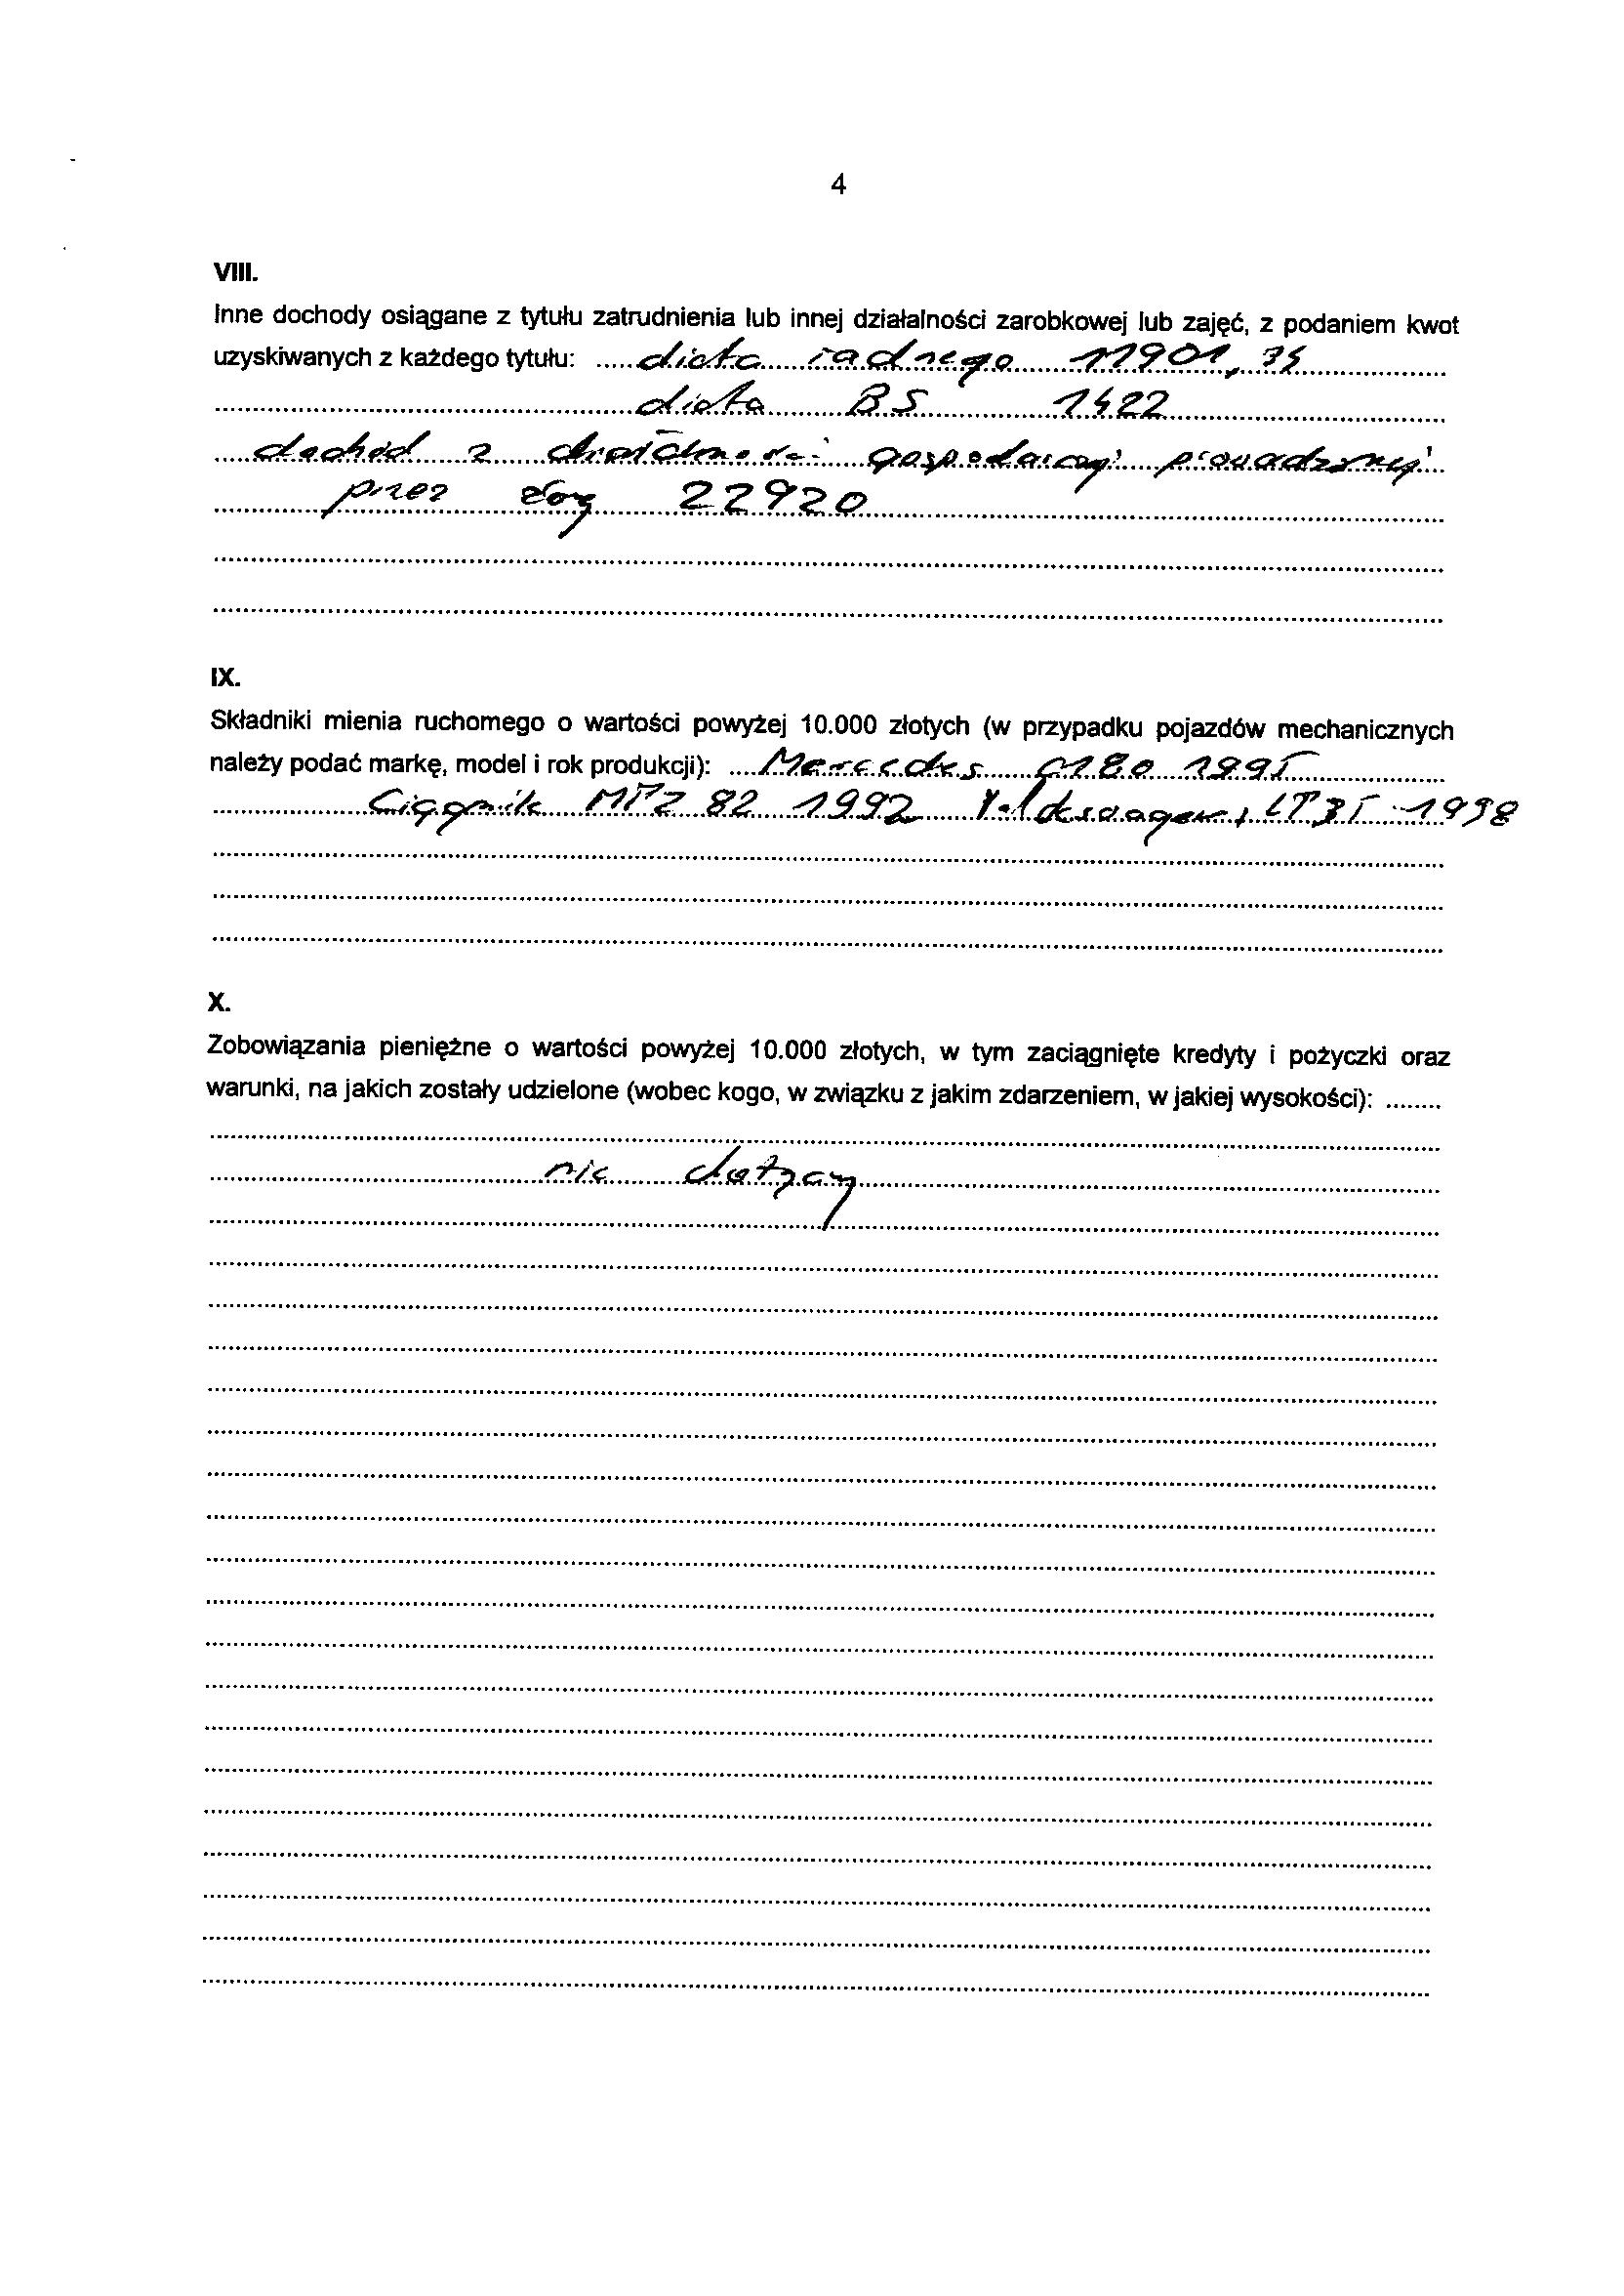 4
VIII.
Inne dochody osiągane z tytułu zatrudnienia lub innej działalności zarobkowej lub zajęć, z podaniem kwot
uzyskiwanych z każdego tytułu: dieta radnego 11901,
dieta BS 1422
dochód z działalności gospodarczej prowadzonej
przez żonę 22920
IX.
Składniki mienia ruchomego o wartości powyżej 10.000 złotych (w przypadku pojazdów mechanicznych
należy podać markę, model i rok produkcji): Mercedes C180 1995
Ciągnik 82 1992 Volkswagen, LT35 1998
X.
Zobowiązania pieniężne o wartości powyżej 10.000 złotych, w tym zaciągnięte kredyty i pożyczki oraz
warunki, na jakich zostały udzielone (wobec kogo, w związku z jakim zdarzeniem, w jakiej wysokości):
nie dotyczy